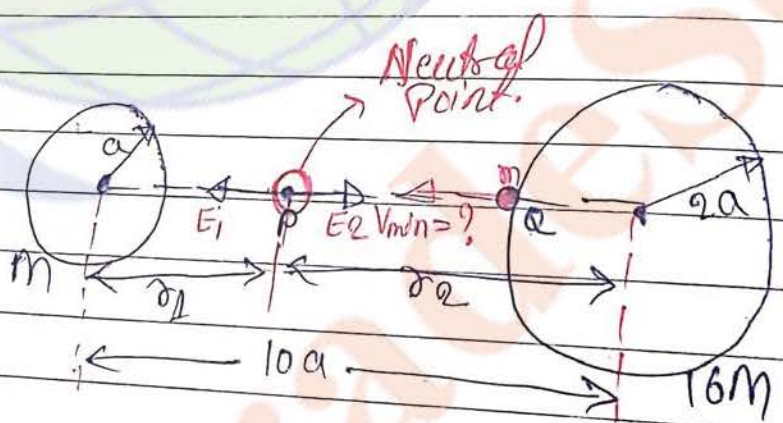 Neutral
Point.
a
E1 P E2 Vmin=? m Q 2a
M r1 r2
10a 16M